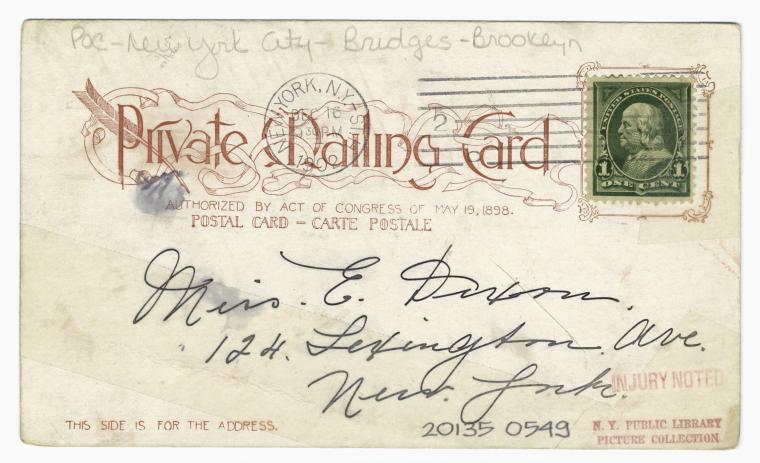 Poc - New York City - Bridges - Brooklyn
NEW YORK, N.Y.
DEC 16
30 PM
1902
2
Private Mailing Card
UNITED STATES POSTAGE
1 1
ONE CENT
AUTHORIZED BY ACT OF CONGRESS OF MAY 19, 1898.
POSTAL CARD – CARTE POSTALE
Miss. E. Dixon.
124. Lexington Ave.
New York.
INJURY NOTED
THIS SIDE IS FOR THE ADDRESS.
20135 0549
N. Y. PUBLIC LIBRARY
PICTURE COLLECTION